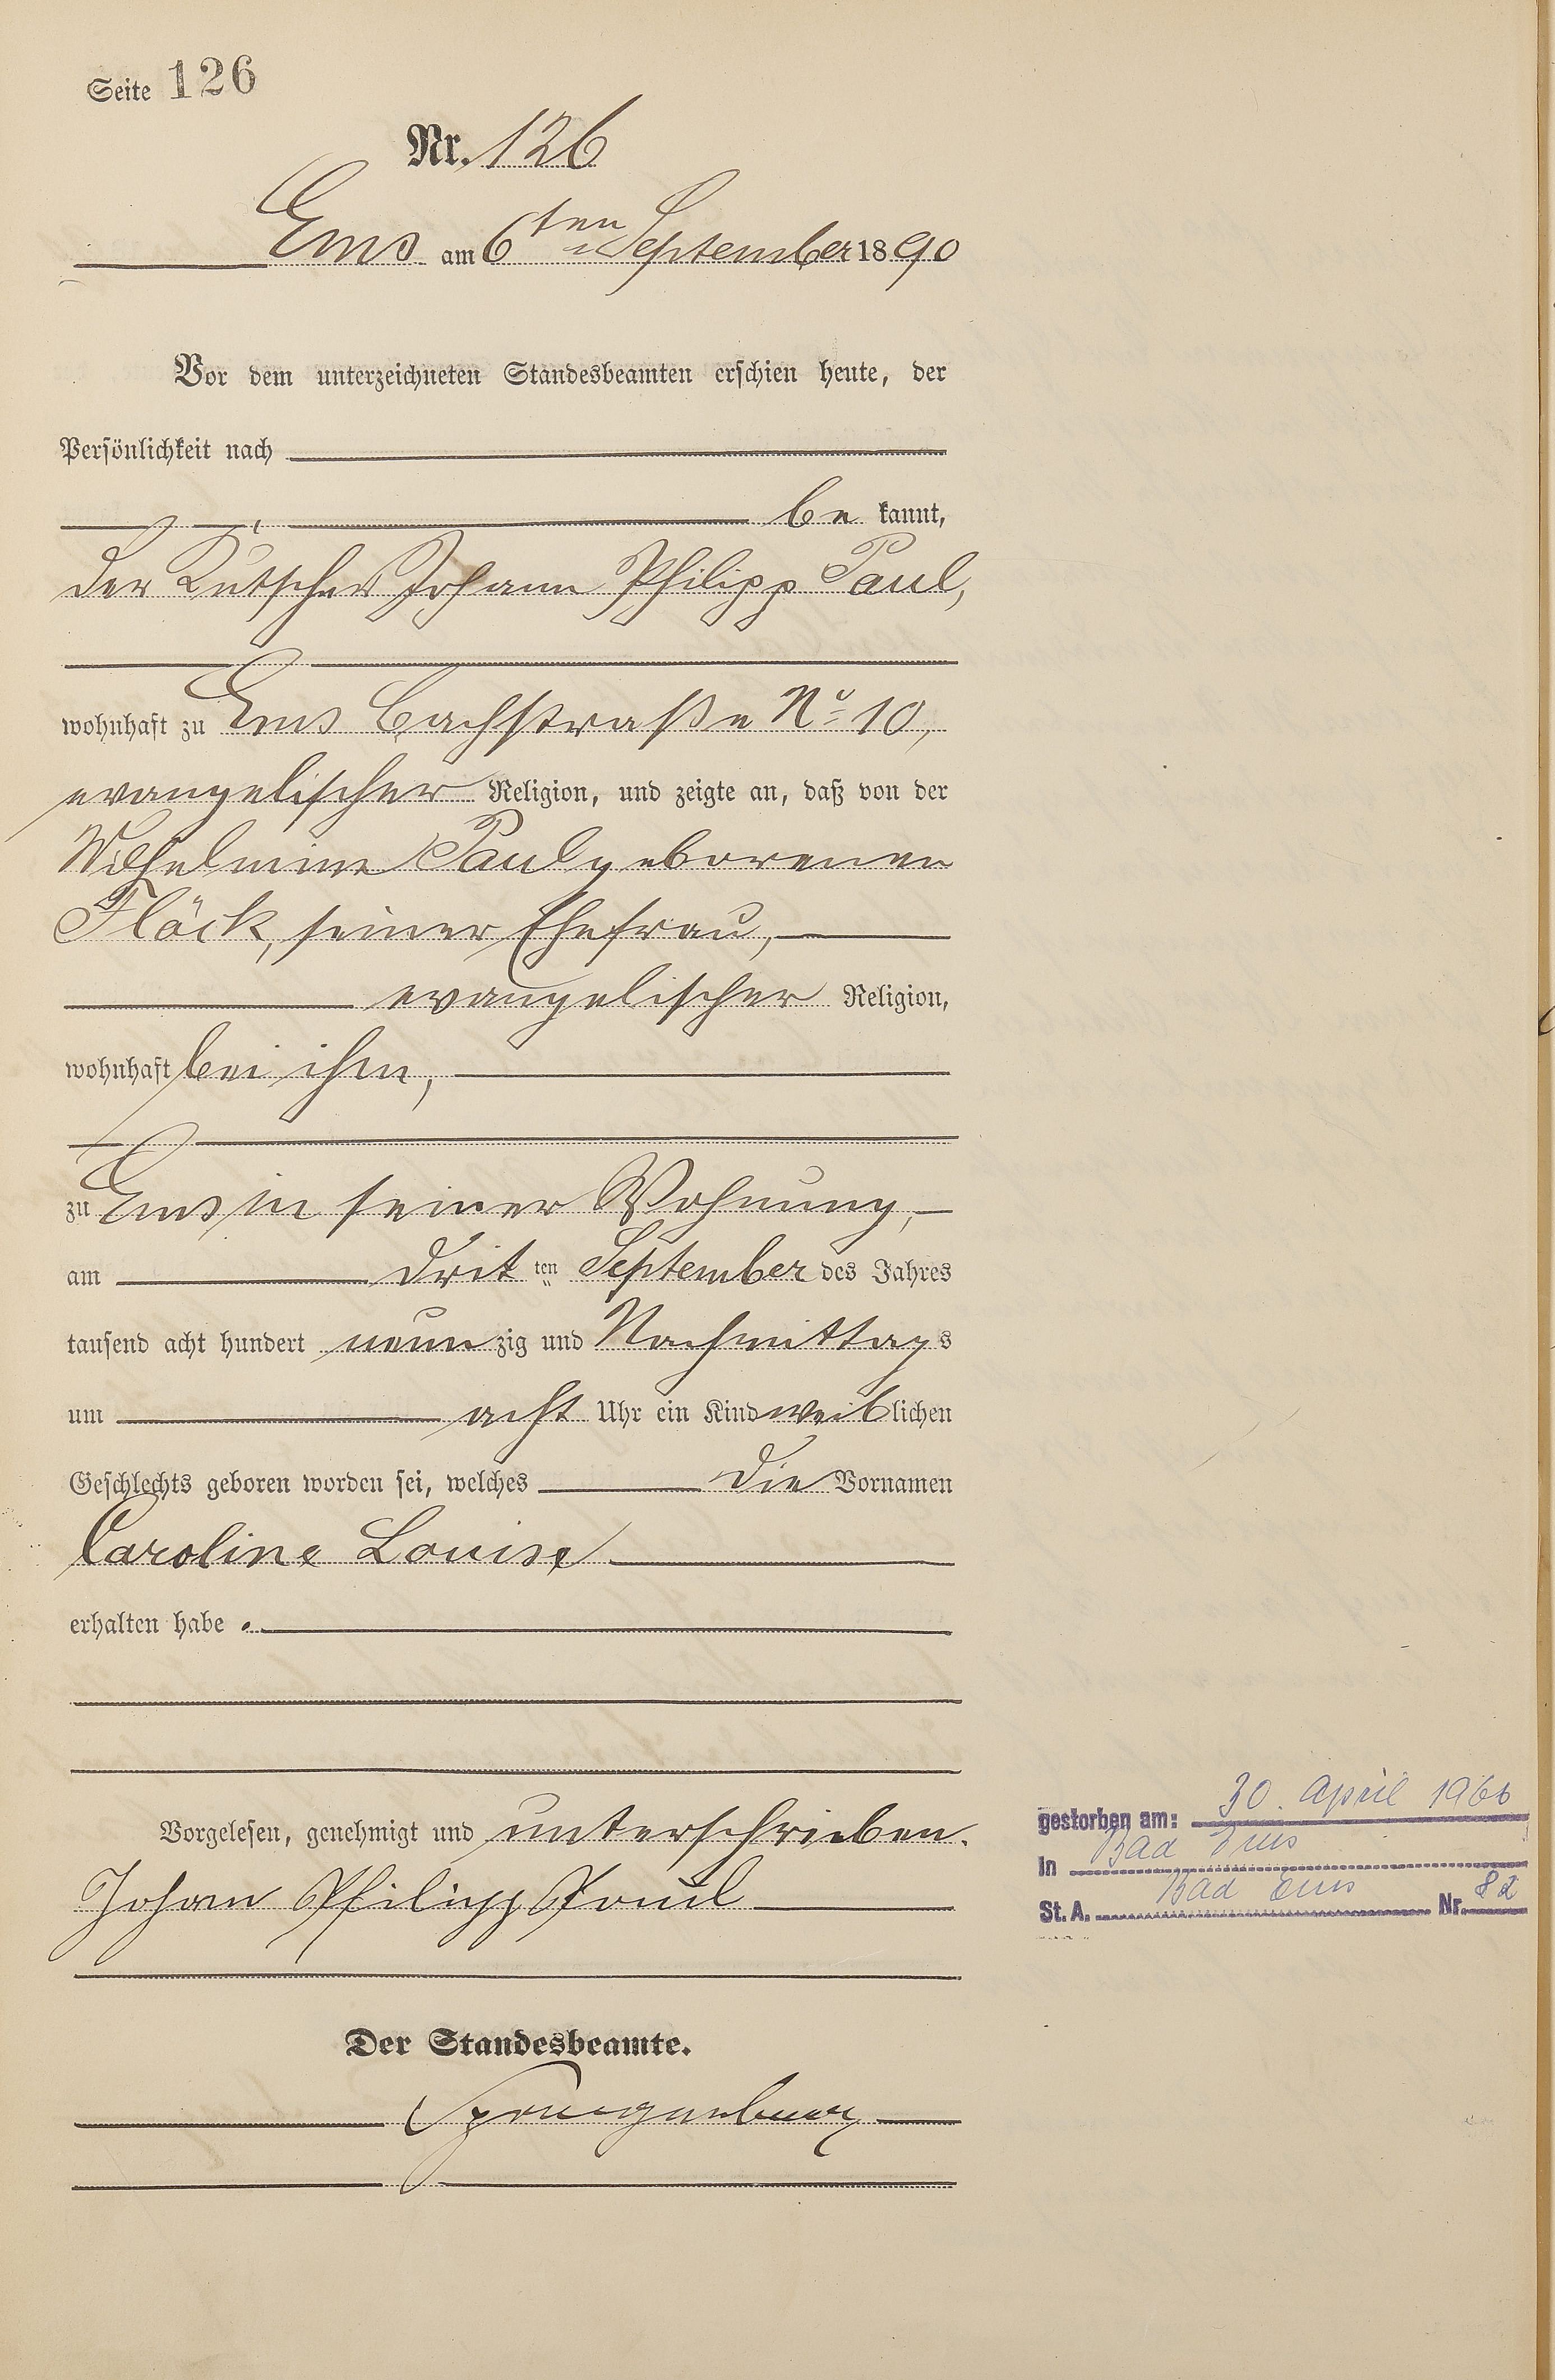 Seite 126
Nr. 126
Ems am 6ten September 1890
Vor dem unterzeichneten Standesbeamten erschien heute, der
Persönlichkeit nach
be kannt,
der Kutscher Johann Philipp Paul,
wohnhaft zu Ems Bachstraße No 10,
evangelischer Religion, und zeigte an, daß von der
Wilhelmine Paul geborenen
Flöck, seiner Ehefrau,
evangelischer Religion,
wohnhaft bei ihm,
zu Ems in seiner Wohnung,
am drit ten September des Jahres
tausend acht hundert neun zig und Nachmittags
um acht Uhr ein Kind weiblichen
Geschlechts geboren worden sei, welches die Vornamen
Caroline Louise
erhalten habe.
Vorgelesen, genehmigt und unterschrieben.
Johan Philipp Paul
Der Standesbeamte.
gestorben am: 30. April 1966
In Bad Ems
St. A. Bad Ems Nr. 82